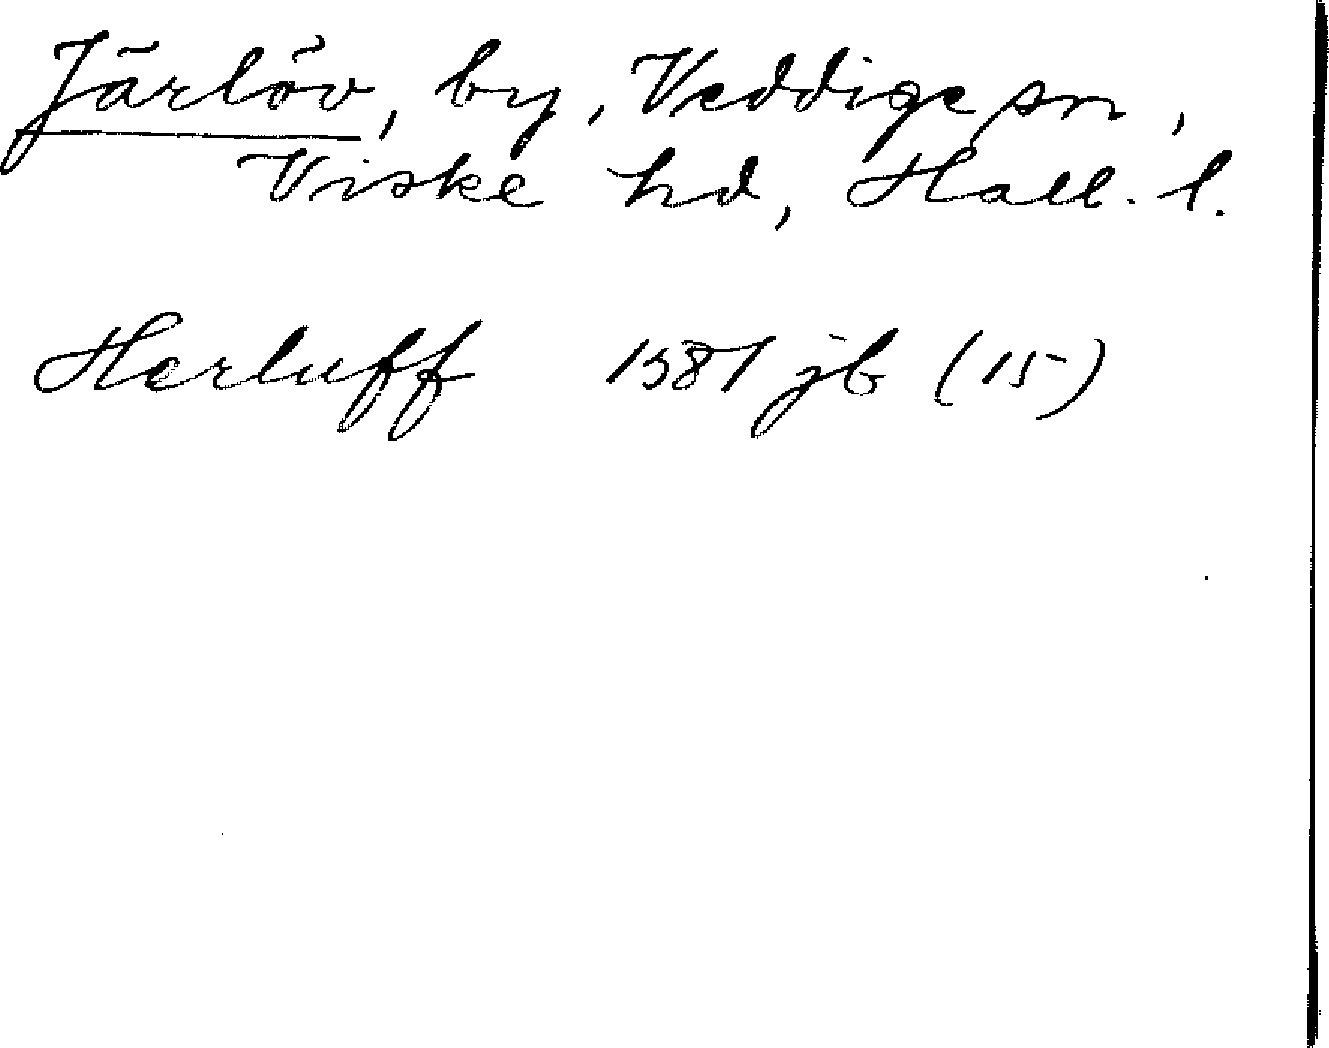 Järlöv, by, Veddige sn,
Viske hd, Hall. l.
Herluff 1581 jb (15)